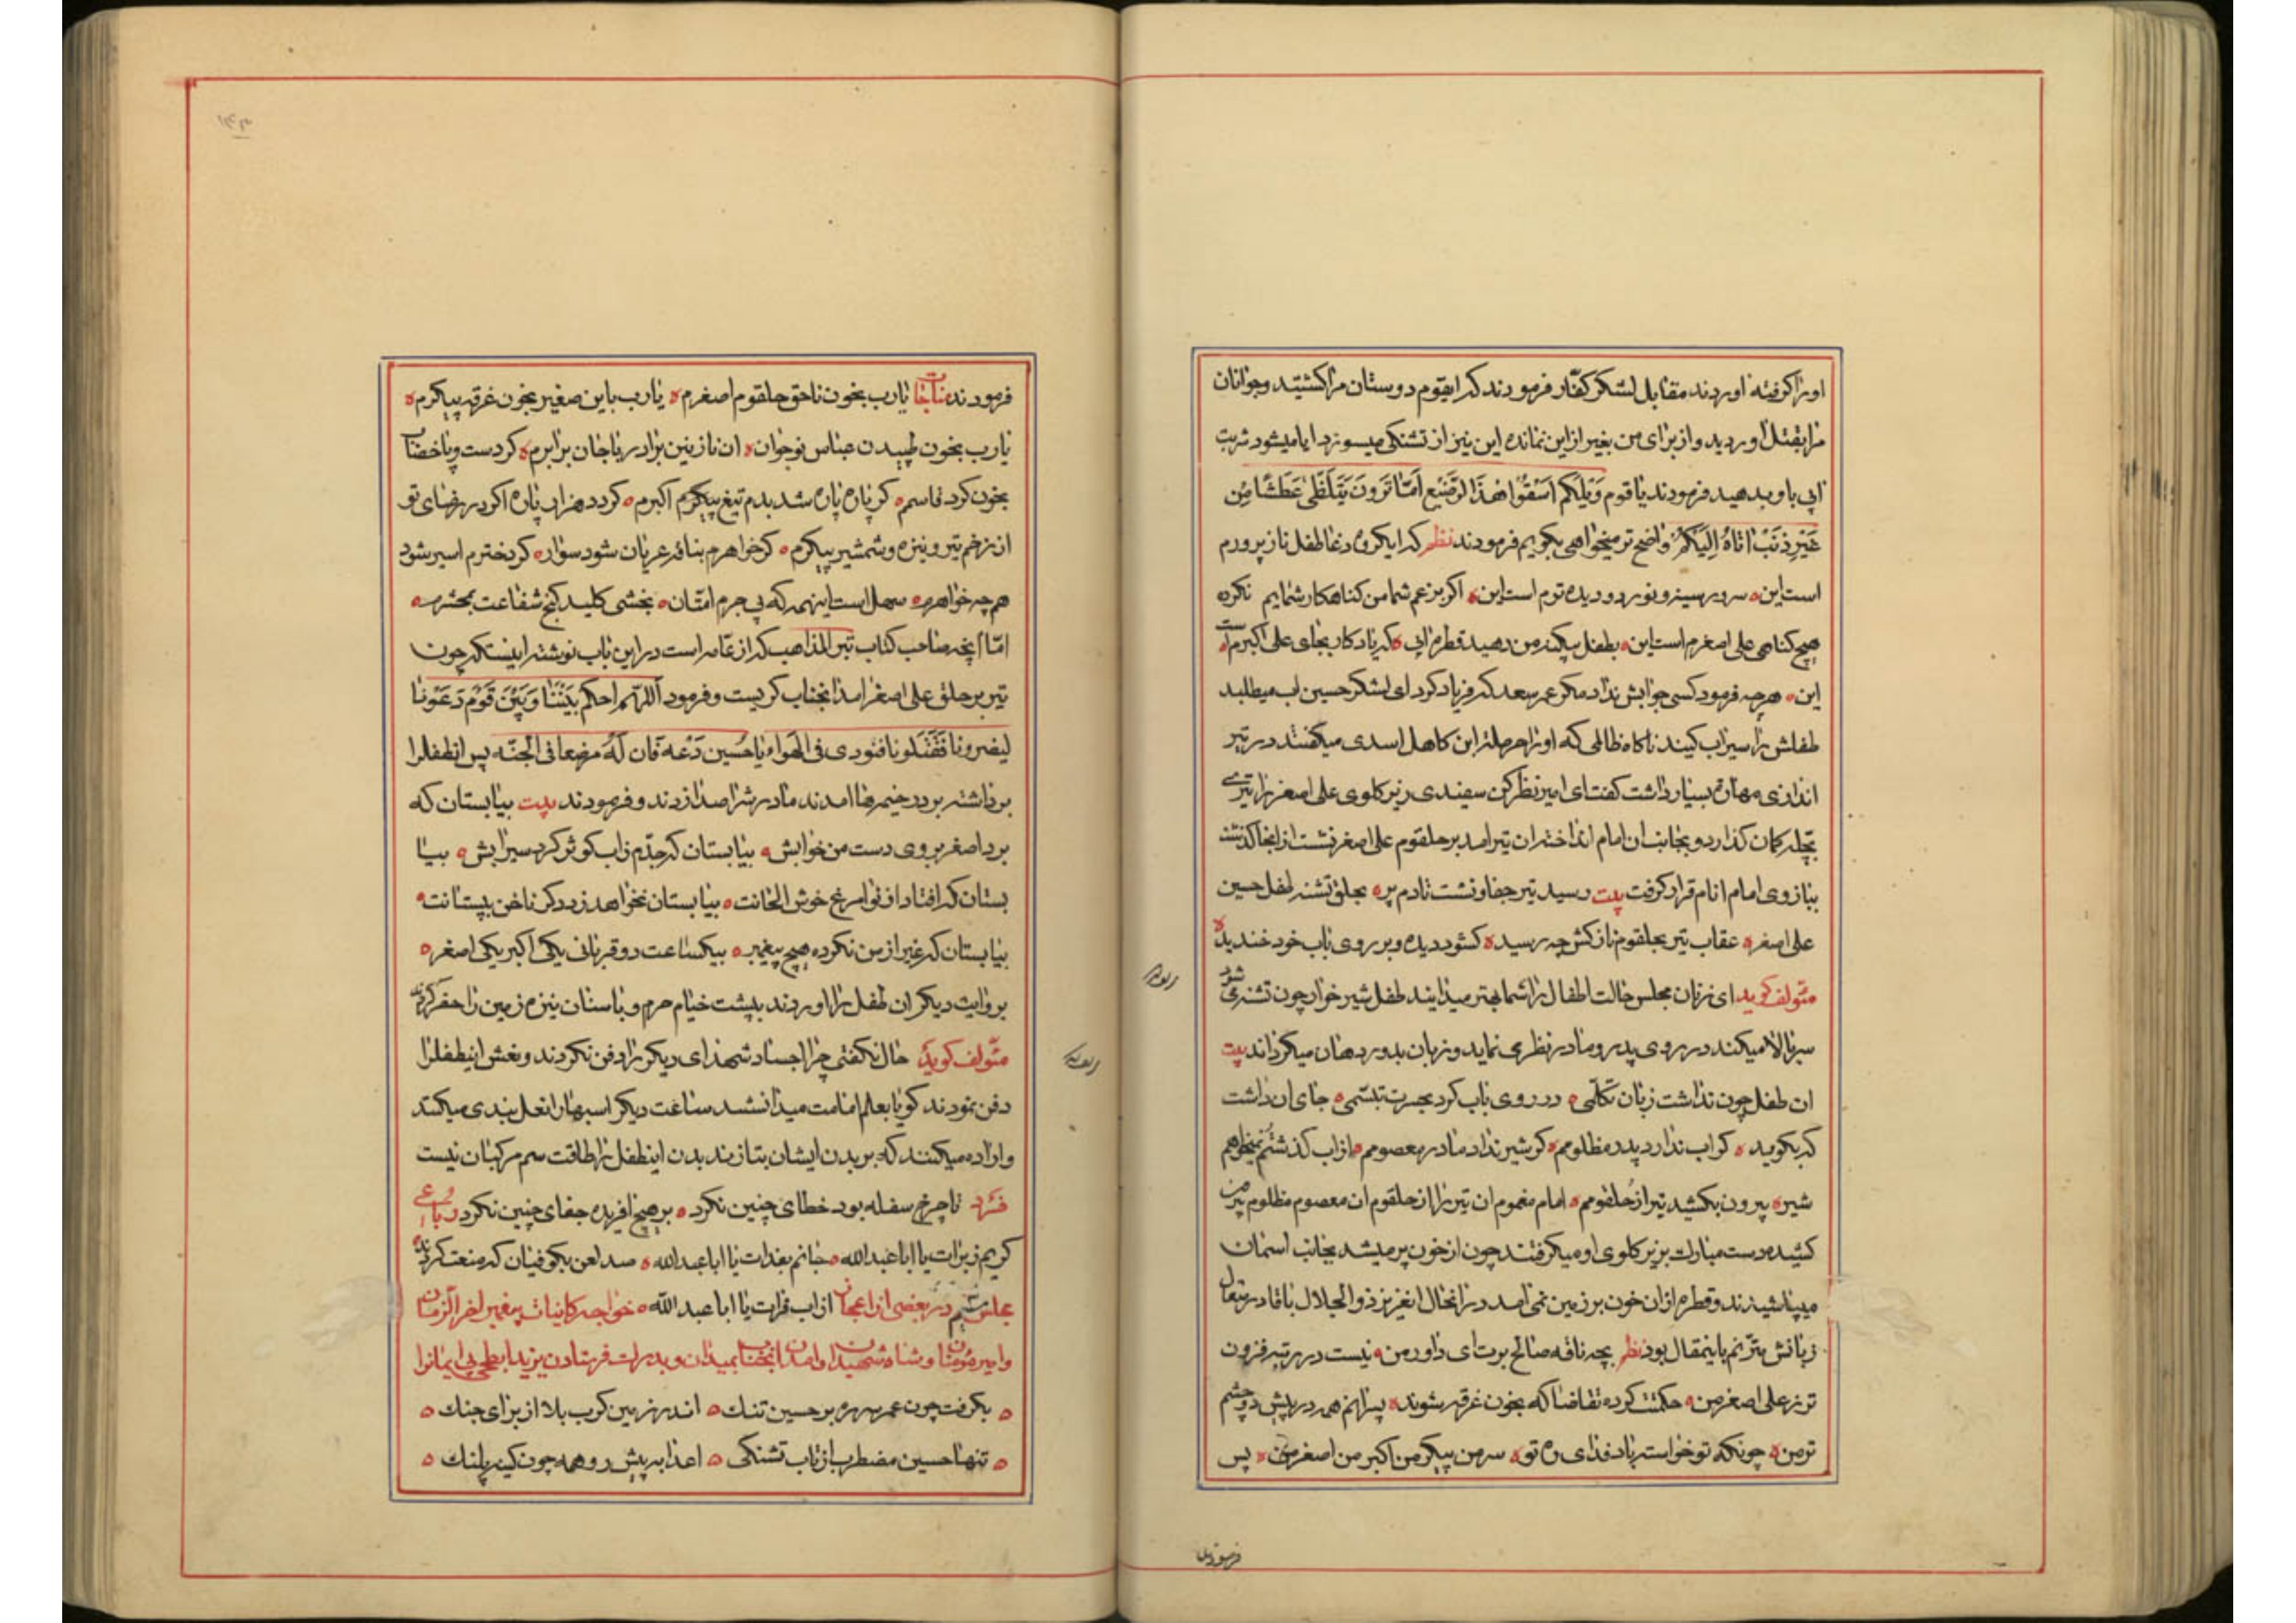 اورا کرفته اوردند مقابل لشکر کفار فرمودند که ایقوم دوستان مرا کشتید وجوانان
مرا بقتل اوردید و از برای من بغیر از این نمانده این نیز از تشنکی میسوزد ایا میشود شربت
ابی باو بدهید فرمودند یا قوم وَیْلَکُم اَسْقُوا هٰذَا الرَّضیع اَمٰا تَرَونَ یَتَلَظّٰی عَطَشًا مِن
غَیْرِ ذَنْبٍ اَتاهُ اِلَیْکُم واضح تر میخواهی بکویم فرمودند نظم که ایکروه دغا طفل نازپرورم
است این سرور سینه و نور دو دیده ترم است این اکر بزعم شما من کناهکار شمایم نکرده
هیچ کناهی علی اصغرم است این بطفل بیکنه من دهید قطره ابی که یادکار بجای علی اکبرم است
این هرچه فرمود کسی جوابش نداد مکر عمر سعد که فریاد کرد ای لشکر حسین اب میطلبد
طفلش را سیراب کنید ناکاه ظالمی که اورا حرمله ابن کاهل اسدی میکفتند در تیر
اندازی مهارة بسیار داشت کفت ای امیر نظر کن سفیدی زیر کلوی علی اصغر را تیری
بچله کمان کذارد و بجانب ان امام انداخت ان تیر امد بر حلقوم علی اصغر نشست از انجا کذشته
ببازوی امام انام قرار کرفت بیت رسید تیر جفا و نشست تا دم پر بحلق تشنه طفل حسین
علی اصغر عقاب تیر بحلقوم نازکش چه رسید کشود دیده و بر روی باب خود خندید
مئولف کوید ای زنان مجلس حالت اطفال را شما بهتر میدانید طفل شیر خوار چون تشنه می شود
سر بالا میکند در روی پدر و مادر نظری نماید و زبان بدور دهان میکرداند بیت
ان طفل چون نداشت زبان تکلمی در روی باب کرد بحسرت تبسمی جای ان داشت
که بکوید کر اب ندارد پدر مظلومم کر شیر نداد مادر معصومم از اب کذشتم نمیخواهم
شیر بیرون بکشید تیر از حلقومم امام مغموم ان تیر را از حلقوم ان معصوم مظلوم بیرون
کشیده دست مبارک بزیر کلوی او میکرفتند چون از خون پر میشد بجانب اسمان
میپاشیدند و قطره از ان خون بر زمین نمی امد در انحال انعزیز ذوالجلال با قادر متعال
زبانش مترنم باینمقال بود نظم بچه ناقه صالح برت ای داور من نیست در رتبه فزون
تر ز علی اصغر من حکمتت کرده تقاضا که بخون غرقه شوند پسرانم همه در پیش دو چشم
تر من چونکه تو خواسته باد فدای ره تو سر من پیکر من اکبر من اصغر من پس
فرمودند
فرمودند مناجات یارب بخون ناحق حلقوم اصغرم یارب باین صغیر بخون غرقه پیکرم
یارب بخون طپیدن عباس نوجوان ان نازنین برادر با جان برابرم کر دست و پا خضاب
بخون کرد قاسم کر پاره پاره شد بدم تیغ پیکرم اکبرم کردد هزار پاره اکر در رضای تو
از زخم تیر و نیزه و شمشیر پیکرم کر خواهرم بناقه عریان شود سوار کر دخترم اسیر شود
همچه خواهرم سهل است اینهمه که بی جرم امتان بخشی کلید کنج شفاعت بمحشرم
امّا انچه صاحب کتاب تبر المذاهب که از عامه است در این باب نوشته اینست که چون
تیر بر حلق علی اصغر امد انجناب کریست و فرمود اَللّهم احکم بَیْنَنٰا وَ بَیْنَ قَوْم دَعَوْنا
لینصرونا فَقَتَلونا فنودی فی الهَواء یا حُسین دَعْه فَان لَهُ مرضعا فی الجنّه پس انطفل را
برداشته بر در خیمه ها امدند مادرش را صدا زدند و فرمودند بیت بیا بستان که
برد اصغر بروی دست من خوابش بیا بستان که جدّم ز اب کوثر کرد سیرابش بیا
بستان که افتاد از نوا مرغ خوش الحانت بیا بستان نخواهد زد دکر ناخن بپستانت
بیا بستان که غیر از من نکرده هیچ پیغمبر بیکساعت دو قربانی یکی اکبر یکی اصغر
بروایت دیکر ان طفل را اوردند بپشت خیام حرم و با سنان نیزه زمین را حفر کردند
مئولف کوید حال نکفتی چرا اجساد شهدای دیکر را دفن نکردند و نعش اینطفل را
دفن نمودند کویا بعلم امامت میدانستند ساعت دیکر اسبهارا نعل بندی میکنند
و اراده میکنند که بر بدن ایشان بتازند بدن اینطفل را طاقت سم مرکبان نیست
فرد تا چرخ سفله بود خطای چنین نکرد بر هیچ افریده جفای چنین نکرد رباعی
کریم ز برات یا ابا عبدالله جانم بفدات یا ابا عبدالله صد لعن بکوفیان که منعت کردند
از اب فرات یا ابا عبدالله خواجه کاینات پیغمبر اخر الزمان
بکرفت چون عمر سر ره بر حسین تنک اندر زمین کرب بلا از برای جنک
تنها حسین مضطرب از تاب تشنکی اعدا به پیش رو همه چون کینه ور پلنک